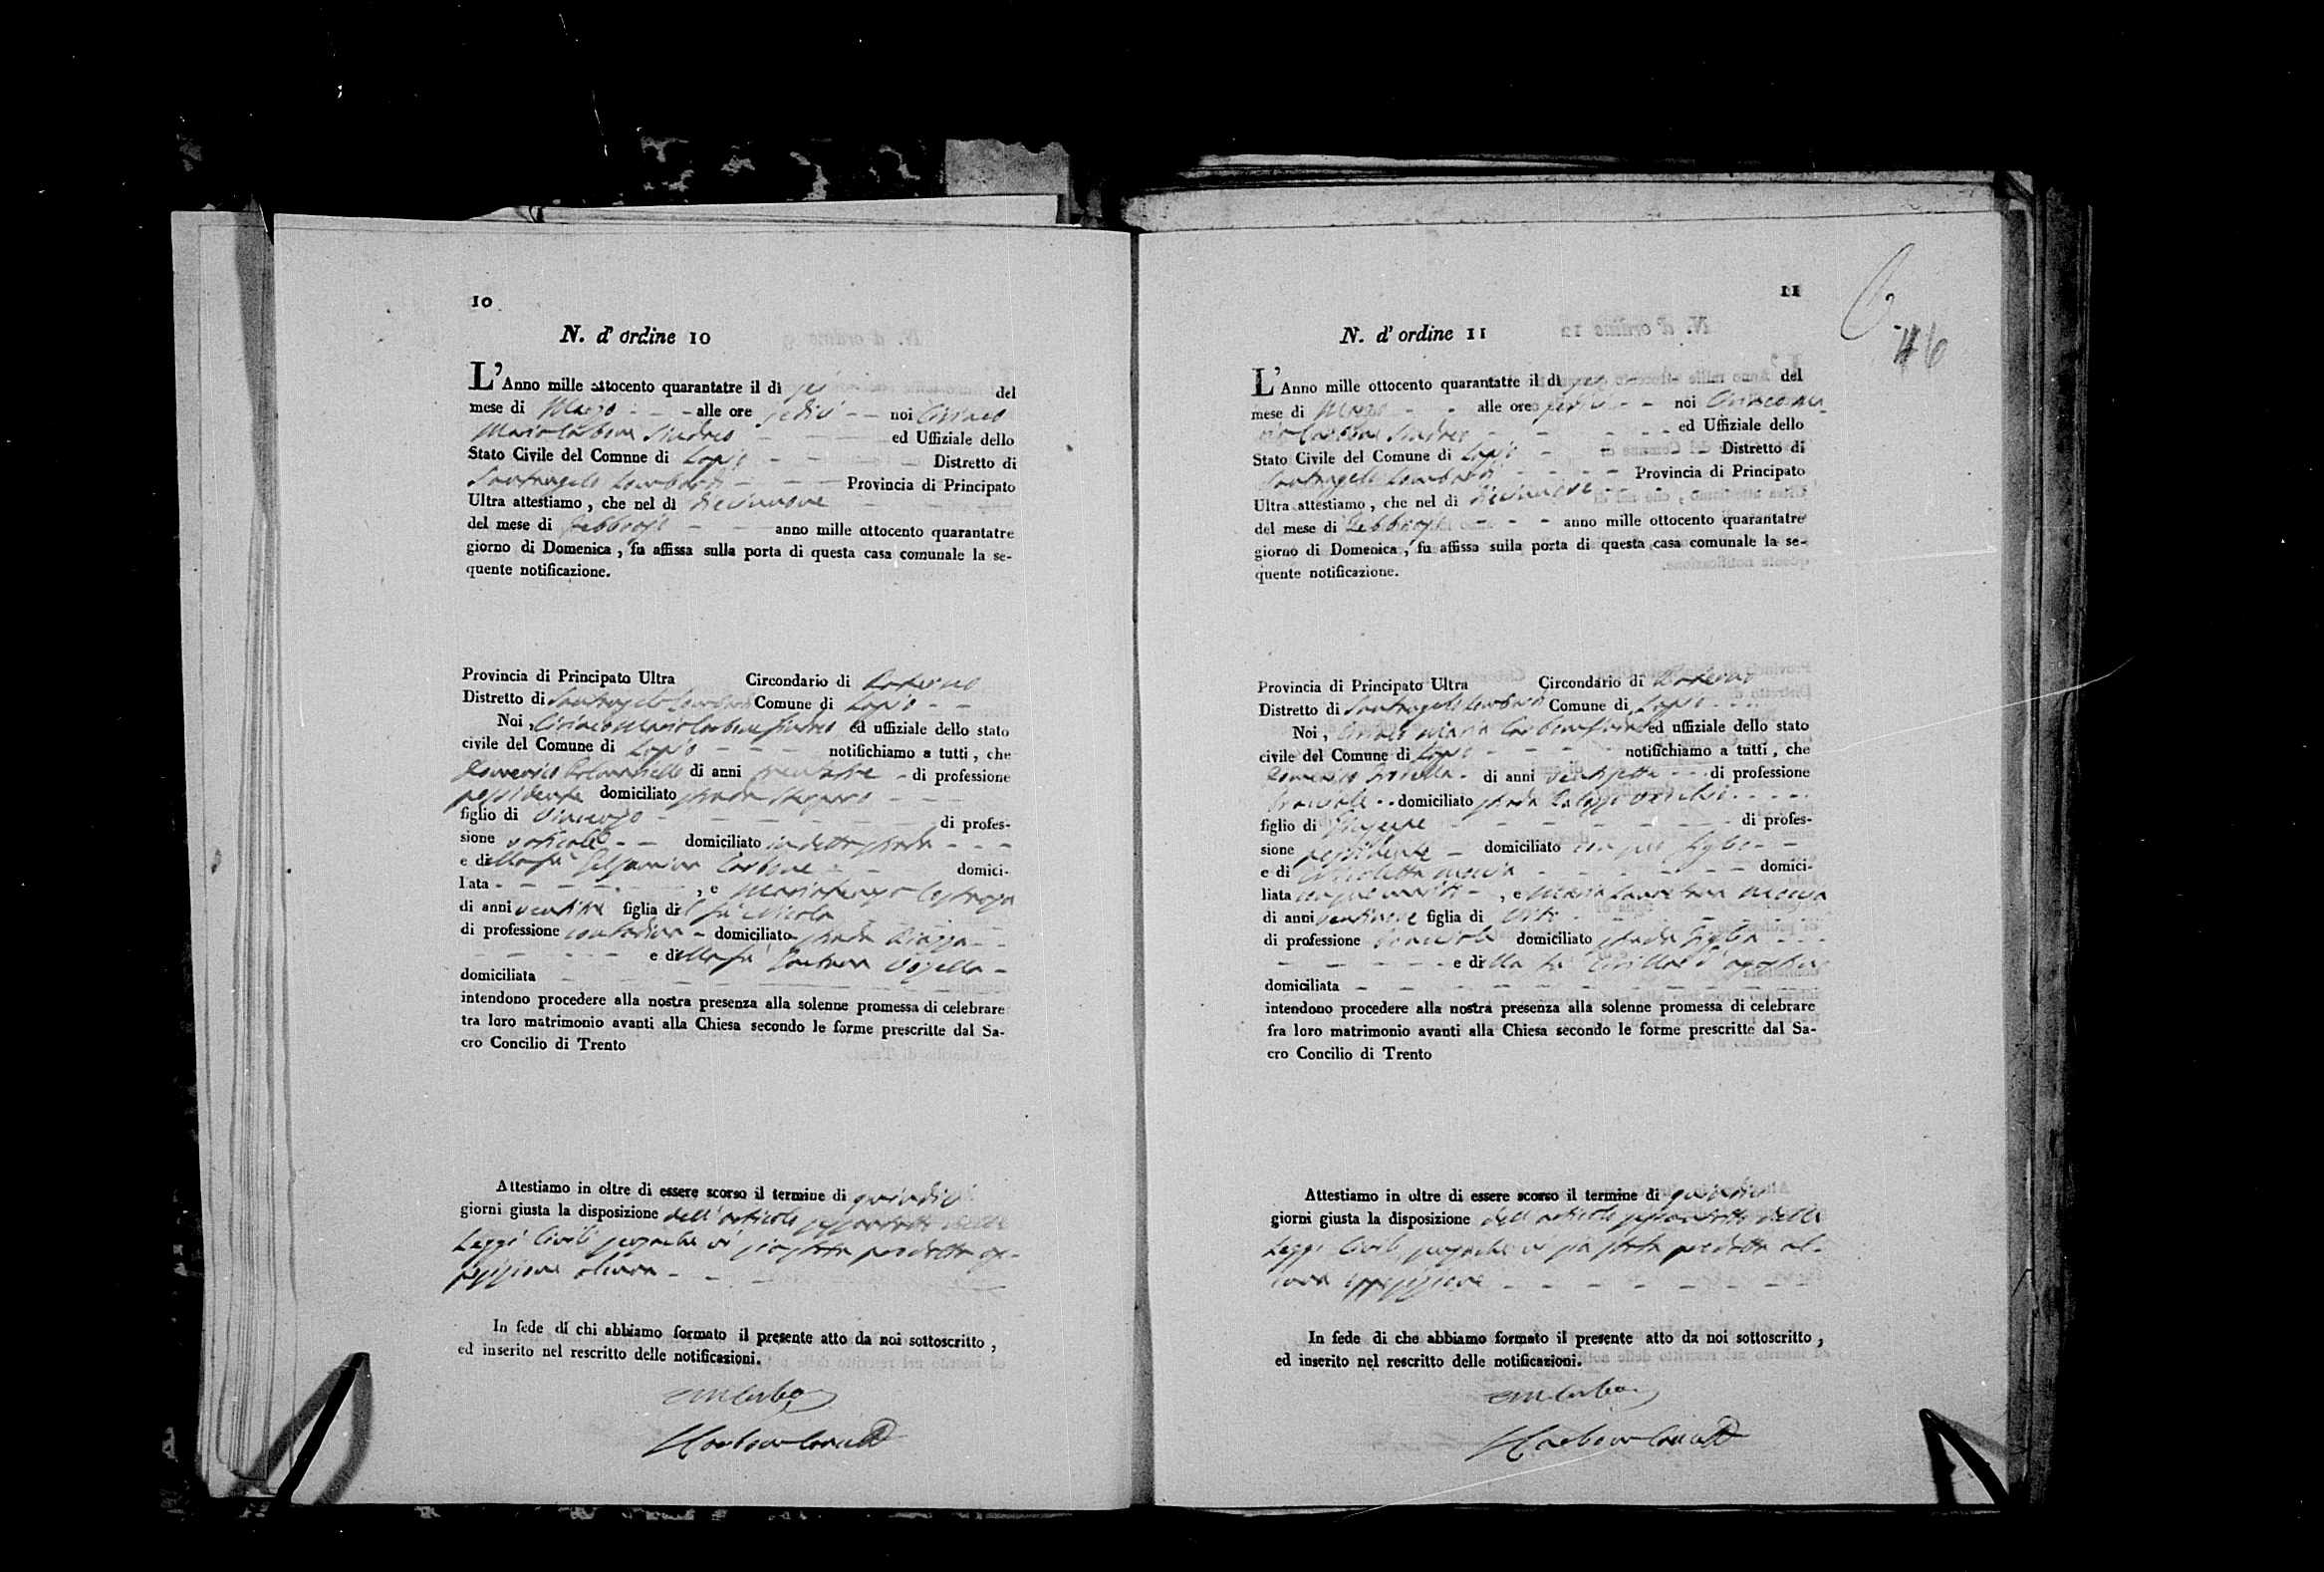 10
N. d' ordine 10
L'Anno mille ottocento quarantatre il dì sei del
mese di Marzo alle ore sedici noi Ciriaco
Maria Carbone Sindaco ed Uffiziale dello
Stato Civile del Comnne di Lapio Distretto di
Santangelo Lombardi Provincia di Principato
Ultra attestiamo, che nel dì diecinnove
del mese di Febbrajo anno mille ottocento quarantatre
giorno di Domenica, fu affissa sulla porta di questa casa comunale la se-
quente notificazione.
Provincia di Principato Ultra Circondario di Paterno
Distretto di Santangelo Lombardi Comune di Lapio
Noi, Ciriaco Maria Carbone Sindaco ed uffiziale dello stato
civile del Comune di Lapio notifichiamo a tutti, che
Domenico di anni trentatre di professione
possidente domiciliato strada
figlio di Vincenzo di profes-
sione domiciliato in detta strada
e di della fu Gelsomina Carbone domici-
liata , e Mariateresa
di anni figlia di fu Nicola
di professione contadina domiciliato strada Piazza
e di della fu
domiciliata
intendono procedere alla nostra presenza alla solenne promessa di celebrare
tra loro matrimonio avanti alla Chiesa secondo le forme prescritte dal Sa-
cro Concilio di Trento
Attestiamo in oltre di essere scorso il termine di quindici
giorni giusta la disposizione dell' articolo sessantotto delle
Leggi Civili senzache vi sia stata prodotta op-
posizione alcuna
In fede di chi abbiamo formato il presente atto da noi sottoscritto,
ed inserito nel rescritto delle notificazioni.
11
46
N. d' ordine 11
L'Anno mille ottocento quarantatre il dì sei del
mese di Marzo alle ore sedici noi Ciriaco Ma-
ria Carbone Sindaco ed Uffiziale dello
Stato Civile del Comune di Lapio Distretto di
Santangelo Lombardi Provincia di Principato
Ultra attestiamo, che nel dì diecinnove
del mese di Febbrajo anno mille ottocento quarantatre
giorno di Domenica, fu affissa sulla porta di questa casa comunale la se-
quente notificazione.
Provincia di Principato Ultra Circondario di Paterno
Distretto di Santangelo Lombardi Comune di Lapio
Noi, Ciriaco Maria Carbone Sindaco ed uffiziale dello stato
civile del Comune di Lapio notifichiamo a tutti, che
Domenico di anni ventisette di professione
bracciale domiciliato strada Palazzo vecchio
figlio di Giuseppe di profes-
sione possidente domiciliato con suo figlio
e di Nicoletta domici-
liata con suo marito , e Maria
di anni ventinove figlia di Vito
di professione bracciale domiciliato strada
e di della fu
domiciliata
intendono procedere alla nostra presenza alla solenne promessa di celebrare
fra loro matrimonio avanti alla Chiesa secondo le forme prescritte dal Sa-
cro Concilio di Trento
Attestiamo in oltre di essere scorso il termine di quindici
giorni giusta la disposizione dell' articolo sessantotto delle
Leggi Civili senzache vi sia stata prodotta al-
cuna opposizione
In fede di che abbiamo formato il presente atto da noi sottoscritto,
ed inserito nel rescritto delle notificazioni.